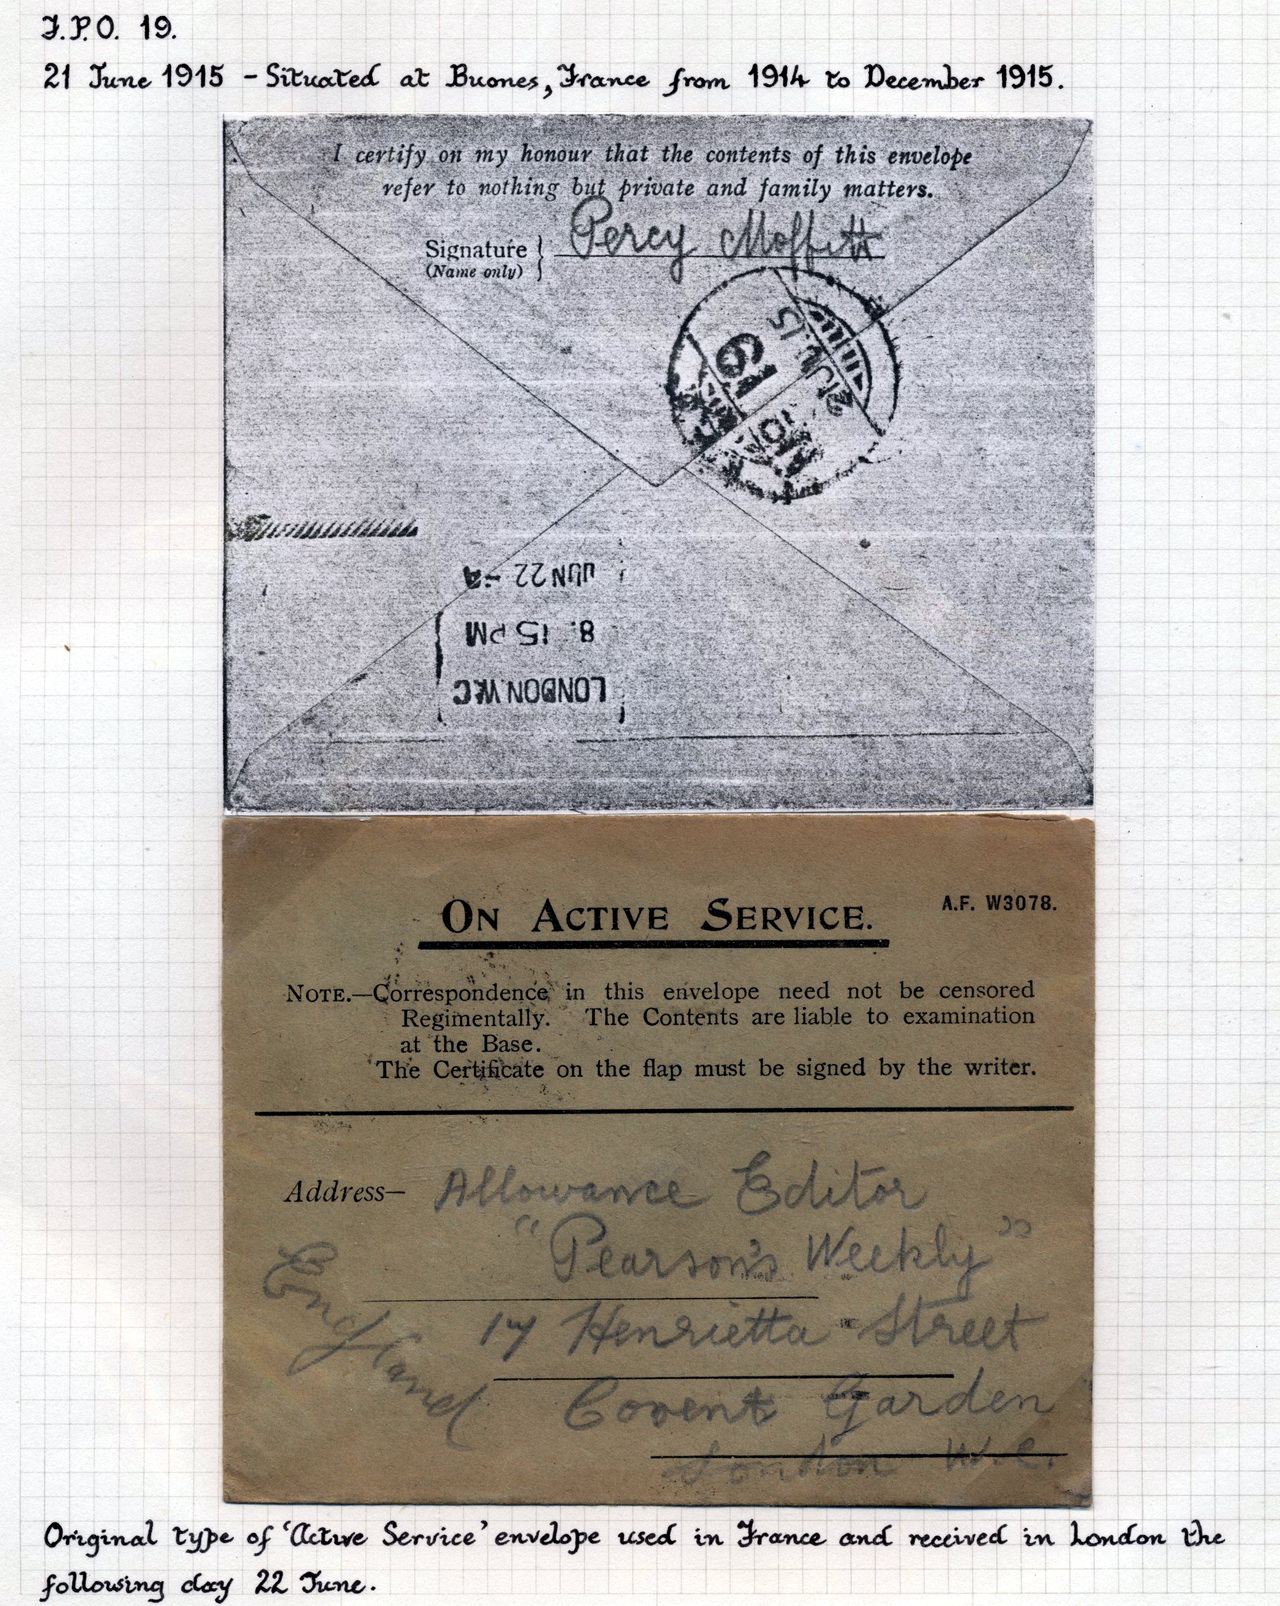 F.P.O. 19.
21 June 1915 - Situated at Buones, France from 1914 to December 1915.
I certify on my honour that the contents of this envelope
refer to nothing but private and family matters.
Signature } Percy Moffett
(Name only)
19
10 AM
21 JU 15
JUN 22 - A
8. 15 PM
LONDON. W.C
ON ACTIVE SERVICE.
A.F. W3078.
NOTE.—Correspondence in this envelope need not be censored
Regimentally. The Contents are liable to examination
at the Base.
The Certificate on the flap must be signed by the writer.
Address— Allowance Editor
"Pearson's Weekly"
17 Henrietta Street
Covent Garden
London W.C.
England
Original type of 'Active Service' envelope used in France and received in London the
following day 22 June.